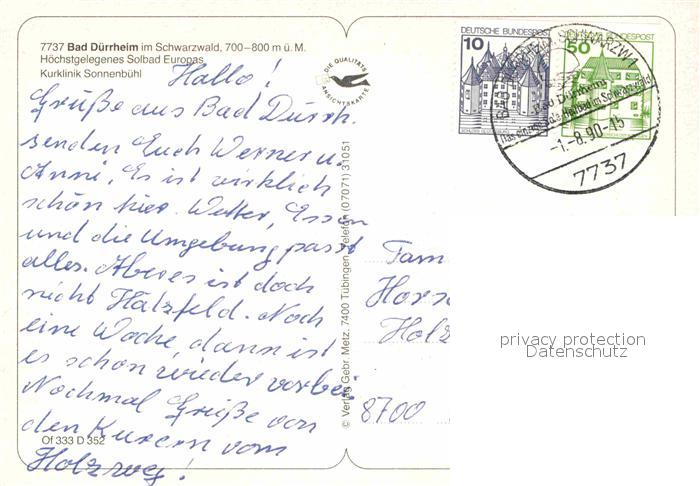 7737 Bad Dürrheim im Schwarzwald, 700–800 m ü. M.
Höchstgelegenes Solbad Europas
Kurklinik Sonnenbühl
DIE QUALITÄTS
ANSICHTSKARTE
Hallo!
Grüße aus Bad Dürrh.
senden Euch Werner u.
Anni. Es ist wirklich
schön hier. Wetter, Essen
und die Umgebung passt
alles. Aber es ist doch
nicht Hätzfeld. Noch
eine Woche, dann ist
es schon wieder vorbei
Nochmal Grüße von
den Kurern vom
Holzweg!
Of 333 D 352
© Verlag Gebr. Metz, 7400 Tübingen, Telefon (07071) 31051
DEUTSCHE BUNDESPOST
10
DEUTSCHE BUNDESPOST
50
SCHLOSS
Bad Dürrheim
-1.-8.90-15
7737
Fam
Horn
Holz
8700
privacy protection
Datenschutz